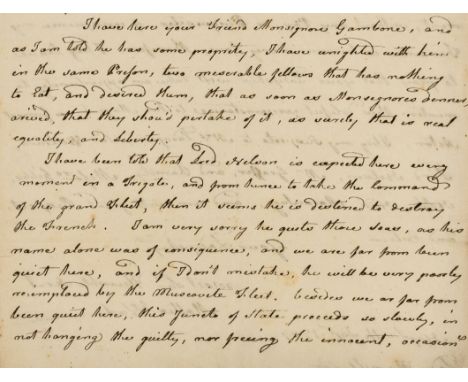 I have here your Friend Monsignore Gambone, and
as I am told he has some proprity, I have unighted with him
in the same Preson, two meserable fellows that has nothing
to Eat, and desered them, that as soon as Monsegnores denner,
arived, that they shou'd pertake of it, as surely that is real
equality, and Leberty.
I have been told that Lord Nelson is expected here every
moment in a Frigate, and from hence to take the Command
of the grand Fleet, then it seems he is destined to destroy
the French. I am very sorry he quets those seas, as his
name alone was of consiquence, and we are far from been
quiet here, and if I don't mestake, he will be very poorly
reimplaced by the Muscovite Fleet. besedes we ar far from
been quiet here, this Juncto of State proceeds so slowly, in
not hanging the guilty, nor freeing the innocent, occasions